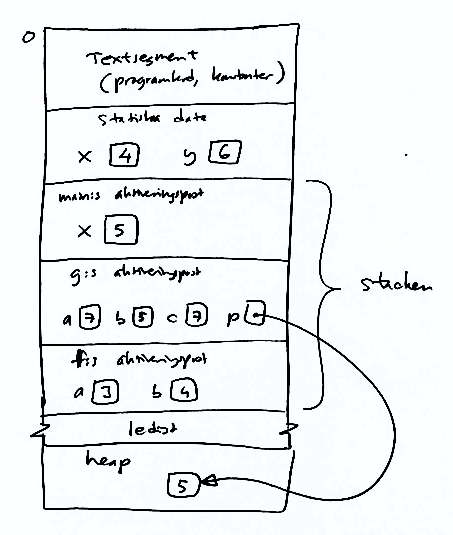 0
Textsegment
(programkod, konstanter)
statiska data
x 4 y 6
main:s aktiveringspost
x 5
g:s aktiveringspost
a 7 b 5 c 7 p
f:s aktiveringspost
a 3 b 4
stacken
ledigt
heap
5